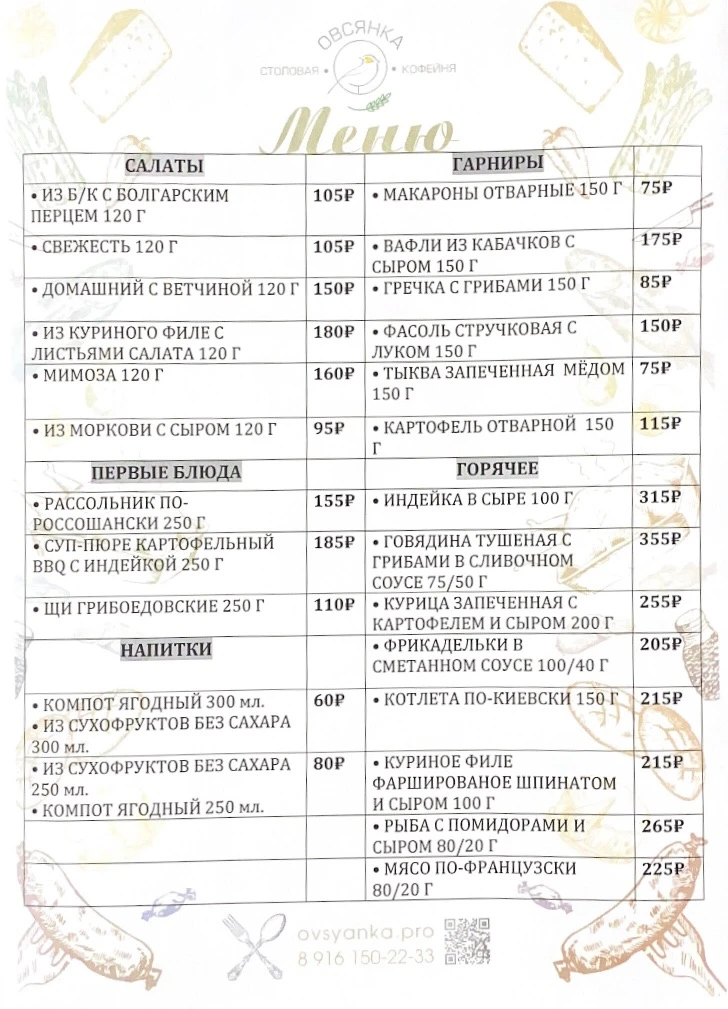 ОВСЯНКА
СТОЛОВАЯ • КОФЕЙНЯ
Меню
САЛАТЫ
• ИЗ Б/К С БОЛГАРСКИМ
ПЕРЦЕМ 120 Г
105₽
• СВЕЖЕСТЬ 120 Г
105₽
• ДОМАШНИЙ С ВЕТЧИНОЙ 120 Г
150₽
• ИЗ КУРИНОГО ФИЛЕ С
ЛИСТЬЯМИ САЛАТА 120 Г
180₽
• МИМОЗА 120 Г
160₽
• ИЗ МОРКОВИ С СЫРОМ 120 Г
95₽
ПЕРВЫЕ БЛЮДА
• РАССОЛЬНИК ПО-
РОССОШАНСКИ 250 Г
155₽
• СУП-ПЮРЕ КАРТОФЕЛЬНЫЙ
BBQ С ИНДЕЙКОЙ 250 Г
185₽
• ЩИ ГРИБОЕДОВСКИЕ 250 Г
110₽
НАПИТКИ
• КОМПОТ ЯГОДНЫЙ 300 мл.
• ИЗ СУХОФРУКТОВ БЕЗ САХАРА
300 мл.
60₽
• ИЗ СУХОФРУКТОВ БЕЗ САХАРА
250 мл.
• КОМПОТ ЯГОДНЫЙ 250 мл.
80₽
ГАРНИРЫ
• МАКАРОНЫ ОТВАРНЫЕ 150 Г
75₽
• ВАФЛИ ИЗ КАБАЧКОВ С
СЫРОМ 150 Г
175₽
• ГРЕЧКА С ГРИБАМИ 150 Г
85₽
• ФАСОЛЬ СТРУЧКОВАЯ С
ЛУКОМ 150 Г
150₽
• ТЫКВА ЗАПЕЧЕННАЯ МЁДОМ
150 Г
75₽
• КАРТОФЕЛЬ ОТВАРНОЙ 150
Г
115₽
ГОРЯЧЕЕ
• ИНДЕЙКА В СЫРЕ 100 Г
315₽
• ГОВЯДИНА ТУШЕНАЯ С
ГРИБАМИ В СЛИВОЧНОМ
СОУСЕ 75/50 Г
355₽
• КУРИЦА ЗАПЕЧЕННАЯ С
КАРТОФЕЛЕМ И СЫРОМ 200 Г
255₽
• ФРИКАДЕЛЬКИ В
СМЕТАННОМ СОУСЕ 100/40 Г
205₽
• КОТЛЕТА ПО-КИЕВСКИ 150 Г
215₽
• КУРИНОЕ ФИЛЕ
ФАРШИРОВАНОЕ ШПИНАТОМ
И СЫРОМ 100 Г
215₽
• РЫБА С ПОМИДОРАМИ И
СЫРОМ 80/20 Г
265₽
• МЯСО ПО-ФРАНЦУЗСКИ
80/20 Г
225₽
ovsyanka.pro
8 916 150-22-33